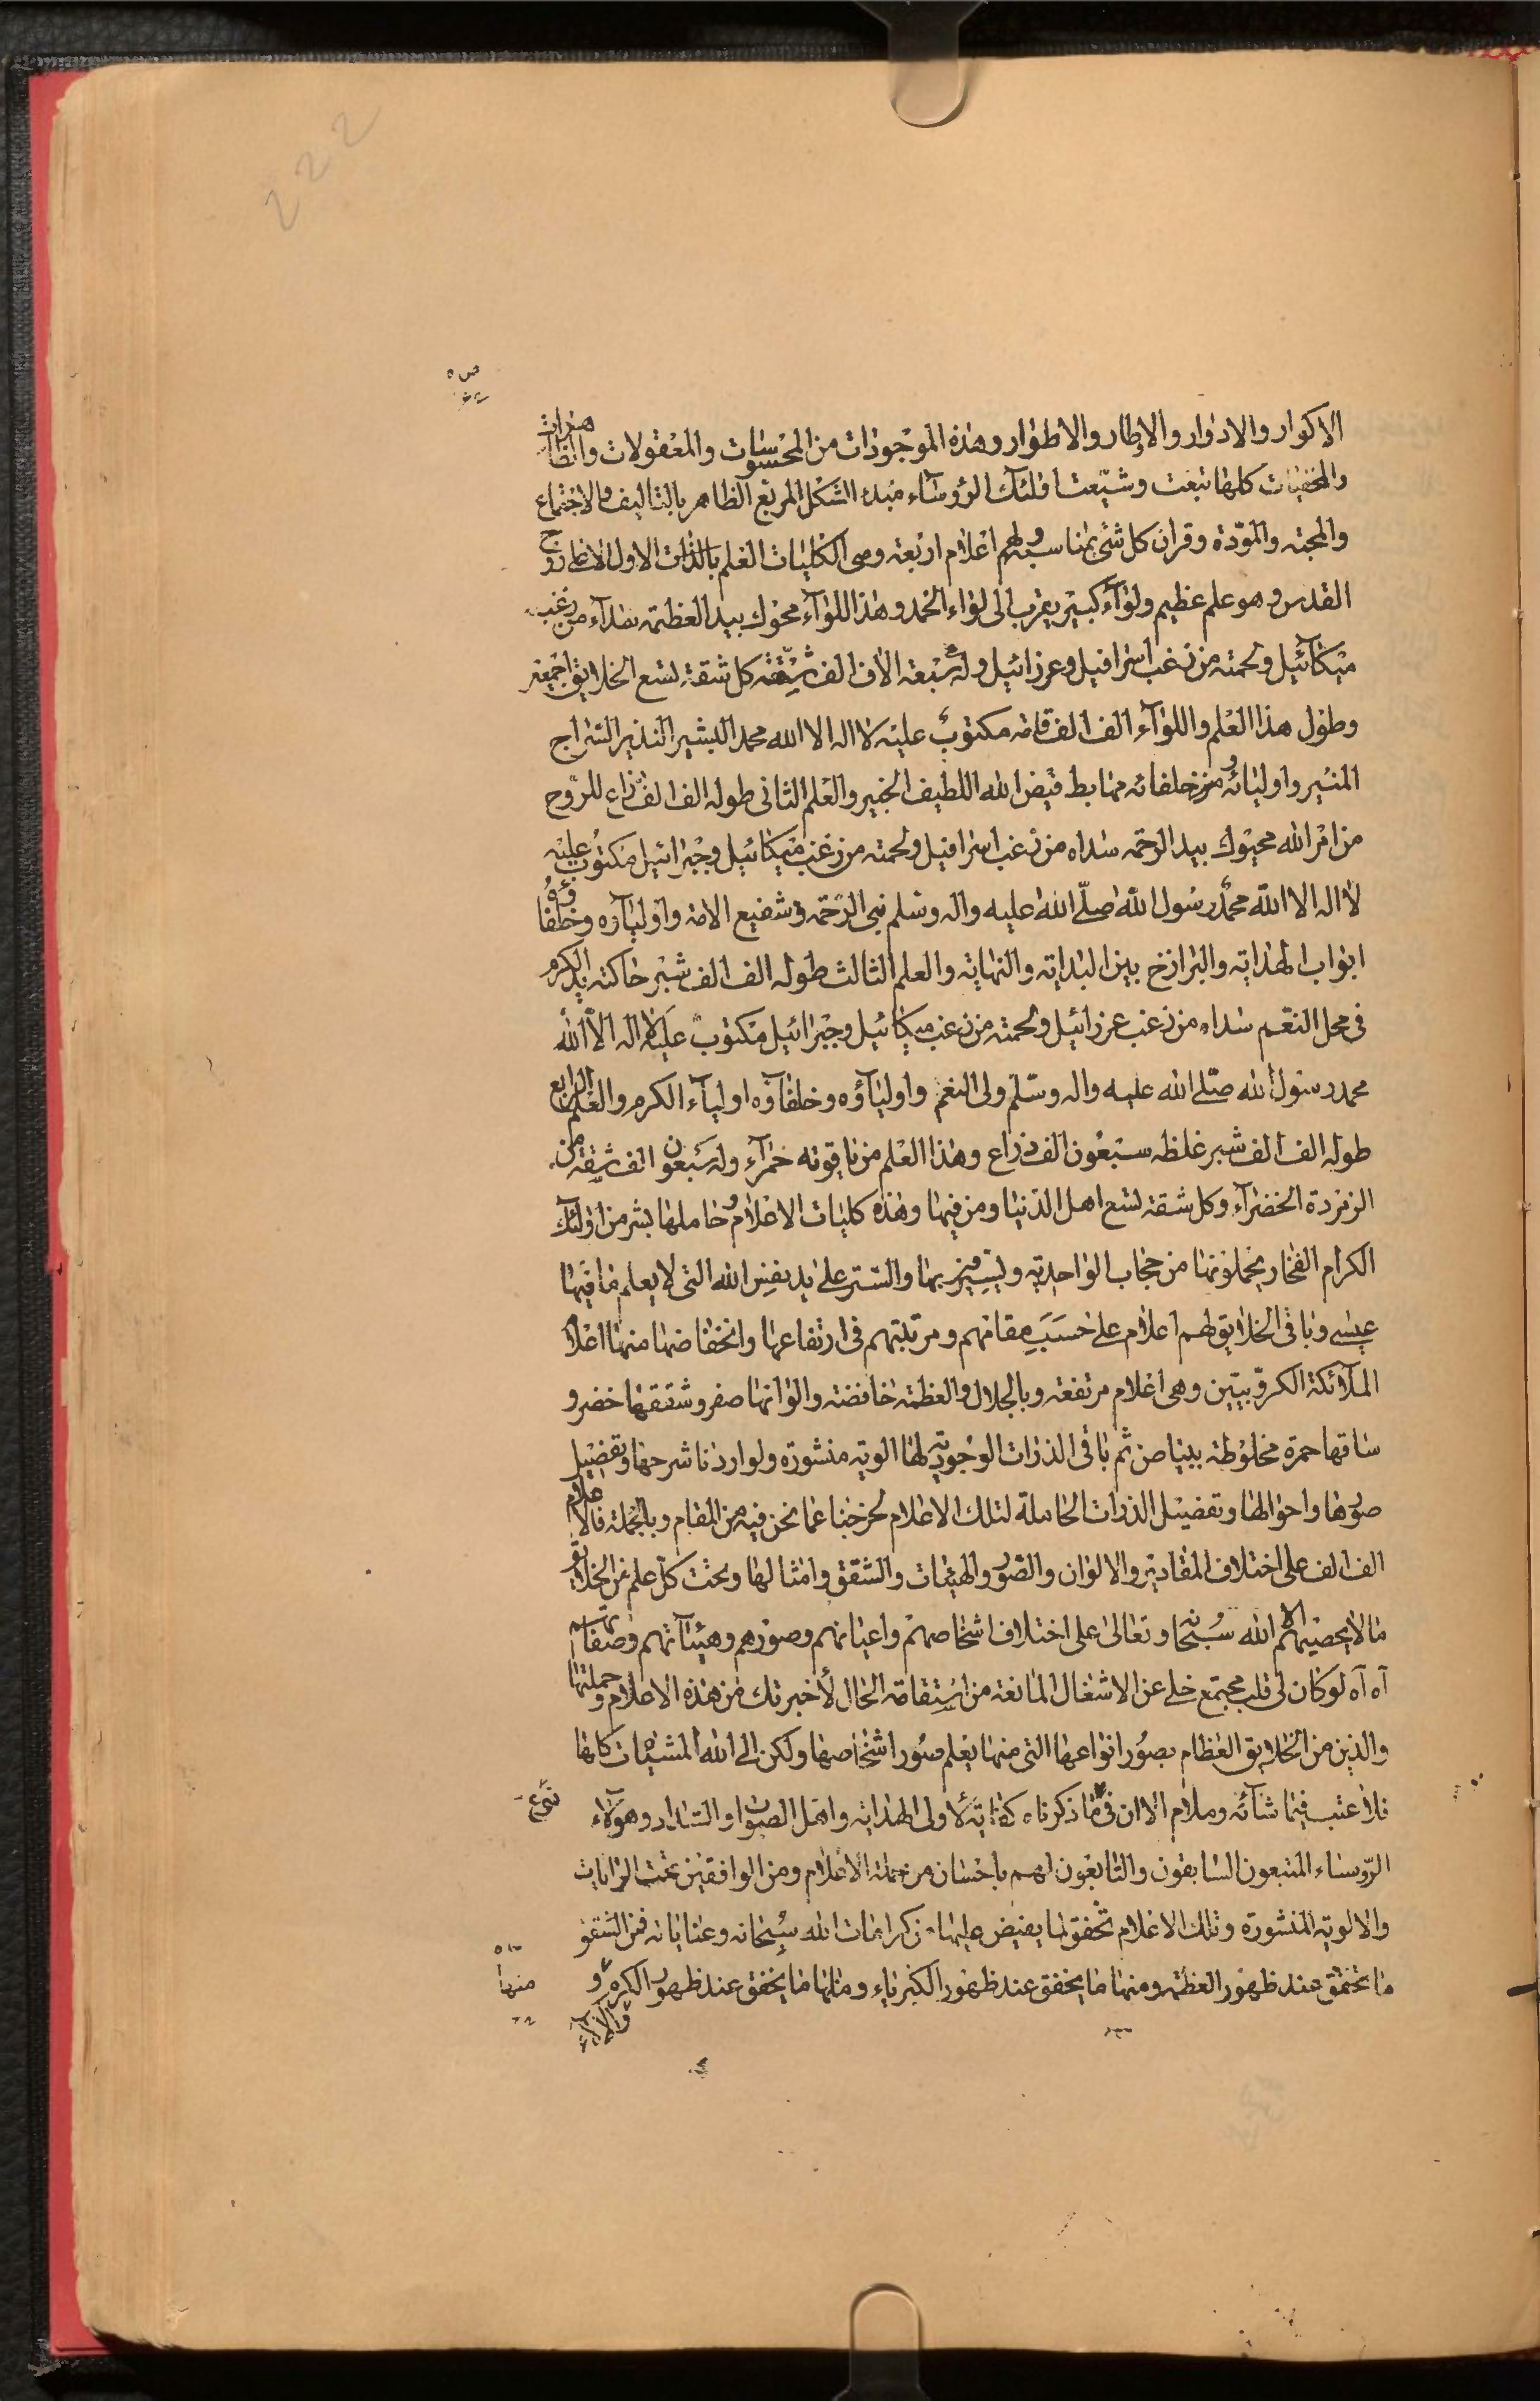 222
الاكوار والادوار والاطار والاطوار وهذه الموجودات من المحسوسات والمعقولات والظاهرات
والمخفيات كلها تبعت وشيّعت اولئك الرؤساء مبدء الشكل المربع الظاهر بالتاليف والاجتماع
والمحبة والمودّة وقران كل شئ بمناسبه ولهم اعلام اربعة وهى الكليات العلم بالذات الاول الاعلى روح
القدس وهو علم عظيم ولواء كبير يقرب الى لواء الحمد وهذا اللواء محوك بيد العظمة سداء من زغب
ميكائيل ولحمته من زغب اسرافيل وعزرائيل وله سبعة الاف الف شقة كل شقة تسع الخلايق اجمعين
وطول هذا العلم واللواء الف الف قامة مكتوب عليه لا اله الا الله محمد البشير النذير السراج
المنير واوليائه من خلفائه مهابط فيض الله اللطيف الخبير والعلم الثانى طوله الف الف ذراع للروح
من امر الله محيوك بيد الرحمة سداه من زغب اسرافيل ولحمته من زغب ميكائيل وجبرائيل مكتوب عليه
لا اله الا الله محمد رسول الله صلّى الله عليه واله وسلم نبى الرحمة وشفيع الامة واولياؤه وخلفاؤه
ابواب الهداية والبرازخ بين البداية والنهاية والعلم الثالث طوله الف الف شبر حاكته يد الكرم
فى محل النعم سداه من زغب عزرائيل ولحمته من زغب ميكائيل وجبرائيل مكتوب عليه لا اله الا الله
محمد رسول الله صلى الله عليه واله وسلّم ولى النعم واولياؤه وخلفاؤه اولياء الكرم والعلم الرابع
طوله الف الف شبر غلظه سبعون الف ذراع وهذا العلم من ياقوته حمراء وله سبعون الف شقة من
الزمردة الخضراء وكل شقة تسع اهل الدنيا ومن فيها وهذه كليات الاعلام وحاملها بشر من اولئك
الكرام الفخار يحملونها من حجاب الواحدية بها والستر على يد نفس الله التى لا يعلم ما فيها
عيسى وباقى الخلايق لهم اعلام على حسب مقامهم ومرتبتهم فى ارتفاعها وانخفاضها منها اعلام
الملائكة الكروبيين وهى اعلام مرتفعة وبالجلال والعظمة خافضة والوانها صفر وشققها خضر و
ساقها حمرة مخلوطة ببياض ثم باقى الذرات الوجودية لها الوية منشورة ولو اردنا شرحها وتفصيل
صورها واحوالها وتفصيل الذرات الحاملة لتلك الاعلام لخرجنا عما نحن فيه من المقام وبالجملة فالاعلام
الف الف على اختلاف المقادير والالوان والصور والهيئات والشقق وامثالها وتحت كل علم من الخلايق
ما لا يحصيهم الا الله سبحانه وتعالى على اختلاف اشخاصهم واعيانهم وصورهم وهيئاتهم وصفاتهم
آه آه لو كان لى قلب مجتمع خلى عن الاشغال المانعة من استقامة الحال لأخبرتك من هذه الاعلام وحملتها
والذين من الخلايق العظام بصور انواعها التى منها يعلم صور اشخاصها ولكن الى الله المشيئات كلها
فلا عتب فيما شائه وملام الا ان فى ما ذكرناه كفاية لاولى الهداية واهل الصواب والسداد وهؤلاء
الرؤساء المتبعون السابقون والتابعون لهم باحسان من حملة الاعلام ومن الواقفين تحت الرايات
والالوية المنشورة وتلك الاعلام تخفق لما يفيض عليها من كرامات الله سبحانه وعناياته فمن الشقق
ما تخفق عند ظهور العظمة ومنها ما يخفق عند ظهور الكبرياء ومنها ما يخفق عند ظهور الكرم و
والالاء
منها